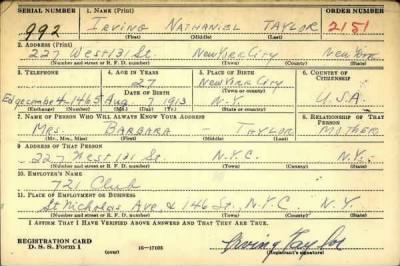 SERIAL NUMBER 1. NAME (Print) ORDER NUMBER
992 IRVING NATHANIEL TAYLOR 2151
(First) (Middle) (Last)
2. ADDRESS (Print)
227 West 131 St. New York City New York
(Number and street or R. F. D. number) (Town) (County) (State)
3. TELEPHONE 4. AGE IN YEARS 5. PLACE OF BIRTH 6. COUNTRY OF CITIZENSHIP
27 New York City
DATE OF BIRTH (Town or county)
Edgecombe 4-1465 Aug 1913 N.Y. U.S.A.
(Exchange) (Number) (Mo.) (Day) (Yr.) (State or country)
7. NAME OF PERSON WHO WILL ALWAYS KNOW YOUR ADDRESS 8. RELATIONSHIP OF THAT PERSON
Mrs. BARBARA - TAYLOR MOTHER
(Mr., Mrs., Miss) (First) (Middle) (Last)
9. ADDRESS OF THAT PERSON
227 West 131 St. N.Y.C. N.Y.
(Number and street or R. F. D. number) (Town) (County) (State)
10. EMPLOYER'S NAME
721 Club
11. PLACE OF EMPLOYMENT OR BUSINESS
St Nicholas Ave. & 146 St. N.Y.C N.Y.
(Number and street or R. F. D. number) (Town) (County) (State)
I AFFIRM THAT I HAVE VERIFIED ABOVE ANSWERS AND THAT THEY ARE TRUE.
REGISTRATION CARD
D. S. S. Form 1 (over) 16-17105 Irving Taylor
(Registrant's signature)